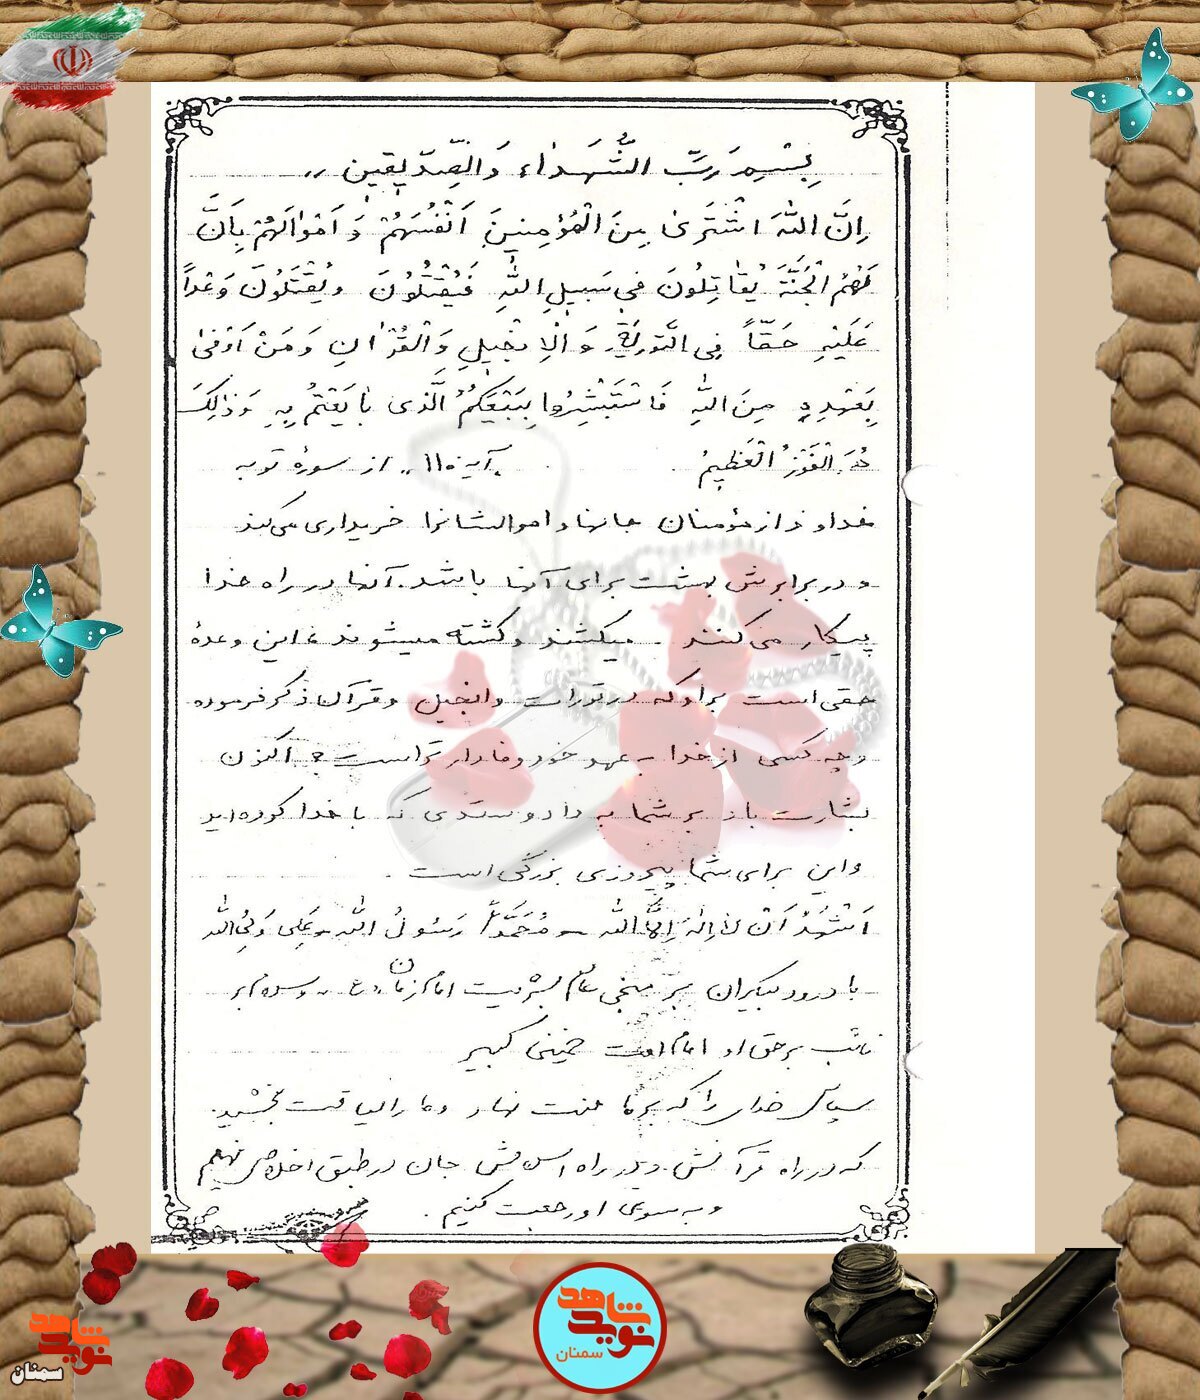 بِسْمِ رَبِّ الشُّهَداء وَالصِّدّیقین ،،
اِنَّ اللهَ اشْتَرَیٰ مِنَ الْمُؤمِنینَ اَنْفُسَهُمْ وَ اَمْوٰالَهُمْ بِاَنَّ
لَهُمُ الْجَنَّةَ یُقٰاتِلُونَ فی سَبیلِ اللهِ فَیُقْتُلُونَ وَیُقْتَلُونَ وَعْداً
عَلَیْهِ حَقّاً فِی التَّوریٰةِ وَ الْاِنْجیلِ وَ الْقُرْآنِ وَ مَنْ اَوْفیٰ
بِعَهْدِهِ مِنَ اللهِ فَاسْتَبْشِرُوا بِبَیْعِکُمُ الَّذی بٰایَعْتُمْ بِهِ وَ ذٰلِکَ
هُوَ الْفَوْزُ الْعَظیمُ آیه ۱۱۰ از سورهٔ توبه
خداوند از مؤمنان جانها و اموالشانرا خریداری می‌کند
و در برابرش بهشت برای آنها باشد. آنها در راه خدا
پیکار می‌کنند . میکشند و کشته میشوند ، این وعدهٔ
حقی است بر او که در تورات و انجیل و قرآن ذکر فرموده
و چه کسی از خدا به عهد خود وفادارتر است ؟ اکنون
بشارت باد بر شما به داد و ستدی که با خدا کرده‌اید
و این برای شما پیروزی بزرگی است .
اَشْهَدُ اَنْ لا اِلٰهَ اِلَّا الله ـ مُحَمَّداً رَسُولُ الله ـ عَلی وَلیُ الله
با درود بیکران بر منجی عالم بشریت امام زمان «ع» و سلام بر
نائب بر حق او امام امت خمینی کبیر
سپاس خدای را که بر ما منت نهاد و ما را لیاقت بخشید.
که در راه قرآنش و در راه اسلامش جان در طبق اخلاص نهیم
و به سوی او رجعت کنیم .
نوید شاهد
سمنان
نوید شاهد
سمنان